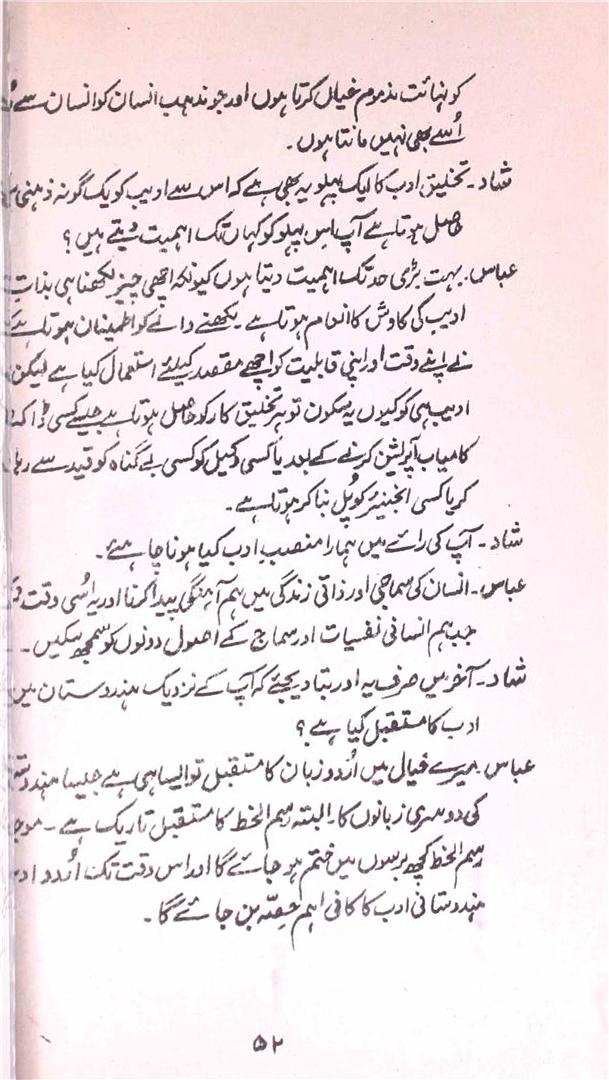 کو نہائت مذموم خیال کرتا ہوں اور جو مذہب انسان کو انسان سے
اُسے بھی نہیں مانتا ہوں۔
شاد۔ تخلیقِ ادب کا ایک پہلو یہ بھی ہے کہ اس سے ادیب کو یک گونہ ذہنی
حاصل ہوتا ہے آپ اس پہلو کو کہاں تک اہمیت دیتے ہیں؟
عباس۔ بہت بڑی حد تک اہمیت دیتا ہوں کیونکہ اچھی چیز لکھنا ہی بذاتِ
ادیب کی کاوش کا انعام ہوتا ہے۔ لکھنے والے کو اطمینان ہوتا ہے کہ
نے اپنے وقت اور اپنی قابلیت کو اچھے مقصد کیلئے استعمال کیا ہے لیکن
ادیب ہی کو کیوں یہ سکون تو ہر تخلیق کار کو حاصل ہوتا ہے جیسے کسی ڈاکٹر
کامیاب آپریشن کرنے کے بعد یا کسی وکیل کو کسی بے گناہ کو قید سے رہا
کر یا کسی انجینیئر کو پُل بنا کر ہوتا ہے۔
شاد۔ آپ کی رائے میں ہمارا منصبِ ادب کیا ہونا چاہئے۔
عباس۔ انسان کی سماجی اور ذاتی زندگی میں ہم آہنگی پیدا کرنا اور یہ اُسی وقت
جب ہم انسانی نفسیات اور سماج کے اصول دونوں کو سمجھ سکیں۔
شاد۔ آخر میں صرف یہ اور بتا دیجئے کہ آپ کے نزدیک ہندوستان میں
ادب کا مستقبل کیا ہے؟
عباس۔ میرے خیال میں اُردو زبان کا مستقبل تو ایسا ہی ہے جیسا
کی دوسری زبانوں کا۔ البتہ رسم الخط کا مستقبل تاریک ہے۔
رسم الخط کچھ برسوں میں ختم ہو جائے گا اور اس وقت تک اُردو
ہندوستانی ادب کا کافی اہم حصّہ بن جائے گا۔
۵۲